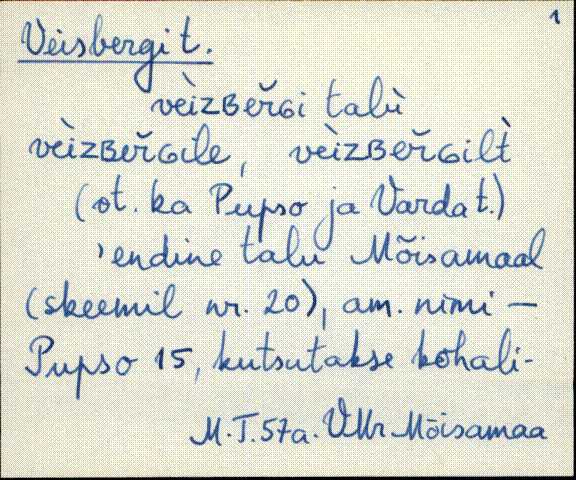 1
Veisbergi t.
vèizʙeřɢi talù
vèizʙeřɢile, vèizʙeřɢilt̀
(ot. ka Pupso ja Varda t.)
'endine talu Mõisamaal
(skeemil nr. 20), am. nimi —
Pupso 15, kutsutakse kohali-
M.T. 57a. VMr Mõisamaa